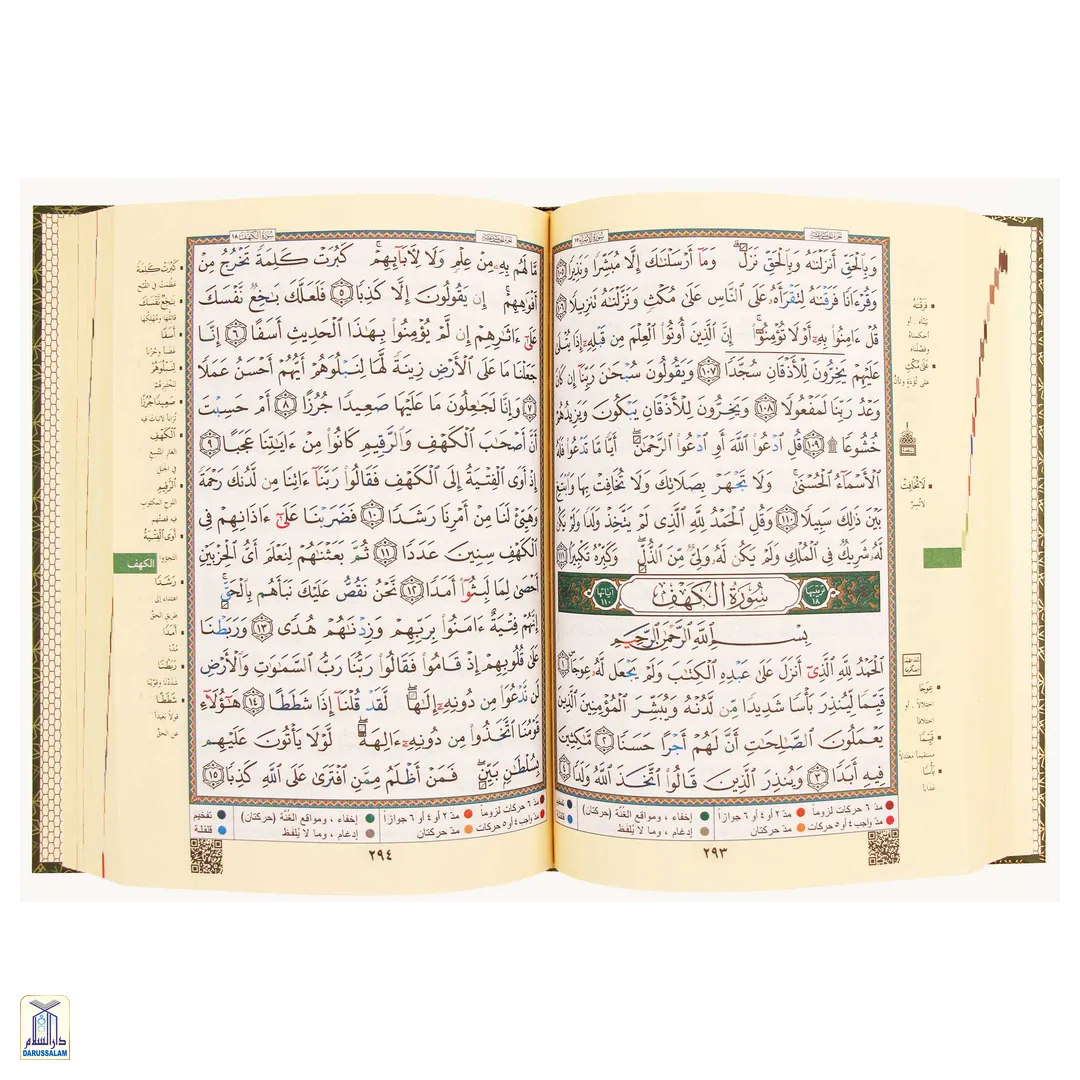 سورة الإسراء ١٧
وَبِالْحَقِّ أَنزَلْنَٰهُ وَبِالْحَقِّ نَزَلَ ۗ وَمَآ أَرْسَلْنَٰكَ إِلَّا مُبَشِّرًا وَنَذِيرًا ١٠٥
وَقُرْءَانًا فَرَقْنَٰهُ لِتَقْرَأَهُۥ عَلَى النَّاسِ عَلَىٰ مُكْثٍ وَنَزَّلْنَٰهُ تَنزِيلًا ١٠٦
قُلْ ءَامِنُوا۟ بِهِۦٓ أَوْ لَا تُؤْمِنُوٓا۟ ۚ إِنَّ الَّذِينَ أُوتُوا۟ الْعِلْمَ مِن قَبْلِهِۦٓ إِذَا يُتْلَىٰ
عَلَيْهِمْ يَخِرُّونَ لِلْأَذْقَانِ سُجَّدًا ١٠٧ وَيَقُولُونَ سُبْحَٰنَ رَبِّنَآ إِن كَانَ
وَعْدُ رَبِّنَا لَمَفْعُولًا ١٠٨ وَيَخِرُّونَ لِلْأَذْقَانِ يَبْكُونَ وَيَزِيدُهُمْ
خُشُوعًا ۩ ١٠٩ قُلِ ادْعُوا۟ اللَّهَ أَوِ ادْعُوا۟ الرَّحْمَٰنَ ۖ أَيًّا مَّا تَدْعُوا۟ فَلَهُ
الْأَسْمَآءُ الْحُسْنَىٰ ۚ وَلَا تَجْهَرْ بِصَلَاتِكَ وَلَا تُخَافِتْ بِهَا وَابْتَغِ
بَيْنَ ذَٰلِكَ سَبِيلًا ١١٠ وَقُلِ الْحَمْدُ لِلَّهِ الَّذِى لَمْ يَتَّخِذْ وَلَدًا وَلَمْ يَكُن
لَّهُۥ شَرِيكٌ فِى الْمُلْكِ وَلَمْ يَكُن لَّهُۥ وَلِىٌّ مِّنَ الذُّلِّ ۖ وَكَبِّرْهُ تَكْبِيرًا ١١١
ترتيبها ١٨ سُورَةُ الْكَهْفِ آياتها ١١٠
بِسْمِ اللَّهِ الرَّحْمَٰنِ الرَّحِيمِ
الْحَمْدُ لِلَّهِ الَّذِىٓ أَنزَلَ عَلَىٰ عَبْدِهِ الْكِتَٰبَ وَلَمْ يَجْعَل لَّهُۥ عِوَجَا ۜ ١
قَيِّمًا لِّيُنذِرَ بَأْسًا شَدِيدًا مِّن لَّدُنْهُ وَيُبَشِّرَ الْمُؤْمِنِينَ الَّذِينَ
يَعْمَلُونَ الصَّٰلِحَٰتِ أَنَّ لَهُمْ أَجْرًا حَسَنًا ٢ مَّٰكِثِينَ
فِيهِ أَبَدًا ٣ وَيُنذِرَ الَّذِينَ قَالُوا۟ اتَّخَذَ اللَّهُ وَلَدًا ٤
فَرَقْنَٰهُ
بيّنّاه . أو
أحكمناه
وفصّلناه
عَلَىٰ مُكْثٍ
على تُؤَدَةٍ وتأنٍّ
لَا تُخَافِتْ
لا تُسِرّ
عِوَجَا
اختلالاً . أو
اختلافاً
قَيِّمًا
مستقيماً معتدلاً
بَأْسًا
عذاباً
مدّ ٦ حركات لزوماً
مدّ ٢ أو ٤ أو ٦ جوازاً
إخفاء ، ومواقع الغُنَّة (حركتان)
مدّ واجب ٤ أو ٥ حركات
مدّ حركتان
إدغام ، وما لا يُلفَظ
٢٩٣
سورة الكهف ١٨
مَّا لَهُم بِهِۦ مِنْ عِلْمٍ وَلَا لِءَابَآئِهِمْ ۚ كَبُرَتْ كَلِمَةً تَخْرُجُ مِنْ
أَفْوَٰهِهِمْ ۚ إِن يَقُولُونَ إِلَّا كَذِبًا ٥ فَلَعَلَّكَ بَٰخِعٌ نَّفْسَكَ
عَلَىٰٓ ءَاثَٰرِهِمْ إِن لَّمْ يُؤْمِنُوا۟ بِهَٰذَا الْحَدِيثِ أَسَفًا ٦ إِنَّا
جَعَلْنَا مَا عَلَى الْأَرْضِ زِينَةً لَّهَا لِنَبْلُوَهُمْ أَيُّهُمْ أَحْسَنُ عَمَلًا
٧ وَإِنَّا لَجَٰعِلُونَ مَا عَلَيْهَا صَعِيدًا جُرُزًا ٨ أَمْ حَسِبْتَ
أَنَّ أَصْحَٰبَ الْكَهْفِ وَالرَّقِيمِ كَانُوا۟ مِنْ ءَايَٰتِنَا عَجَبًا ٩
إِذْ أَوَى الْفِتْيَةُ إِلَى الْكَهْفِ فَقَالُوا۟ رَبَّنَآ ءَاتِنَا مِن لَّدُنكَ رَحْمَةً
وَهَيِّئْ لَنَا مِنْ أَمْرِنَا رَشَدًا ١٠ فَضَرَبْنَا عَلَىٰٓ ءَاذَانِهِمْ فِى
الْكَهْفِ سِنِينَ عَدَدًا ١١ ثُمَّ بَعَثْنَٰهُمْ لِنَعْلَمَ أَىُّ الْحِزْبَيْنِ
أَحْصَىٰ لِمَا لَبِثُوٓا۟ أَمَدًا ١٢ نَّحْنُ نَقُصُّ عَلَيْكَ نَبَأَهُم بِالْحَقِّ ۚ
إِنَّهُمْ فِتْيَةٌ ءَامَنُوا۟ بِرَبِّهِمْ وَزِدْنَٰهُمْ هُدًى ١٣ وَرَبَطْنَا
عَلَىٰ قُلُوبِهِمْ إِذْ قَامُوا۟ فَقَالُوا۟ رَبُّنَا رَبُّ السَّمَٰوَٰتِ وَالْأَرْضِ
لَن نَّدْعُوَا۟ مِن دُونِهِۦٓ إِلَٰهًا ۖ لَّقَدْ قُلْنَآ إِذًا شَطَطًا ١٤ هَٰٓؤُلَآءِ
قَوْمُنَا اتَّخَذُوا۟ مِن دُونِهِۦٓ ءَالِهَةً ۖ لَّوْلَا يَأْتُونَ عَلَيْهِم
بِسُلْطَٰنٍۭ بَيِّنٍ ۖ فَمَنْ أَظْلَمُ مِمَّنِ افْتَرَىٰ عَلَى اللَّهِ كَذِبًا ١٥
كَبُرَتْ كَلِمَةً
عظُمت في القُبح
بَٰخِعٌ نَّفْسَكَ
قاتلُها ومُهلكُها
أَسَفًا
غضباً وحُزناً
لِنَبْلُوَهُمْ
لنختبرهم
صَعِيدًا جُرُزًا
تُراباً لا نبات فيه
الْكَهْفِ
الغار المُتّسع
في الجبل
الرَّقِيمِ
اللوح المكتوب
فيه قصتُهم
أَوَى الْفِتْيَةُ
التجؤوا
الكهف
رَشَدًا
اهتداء إلى
طريق الحقّ
أَمَدًا
مُدّة
رَبَطْنَا
شددْنا وقوّيْنا
شَطَطًا
قولاً بعيداً
عن الحقّ
مدّ ٦ حركات لزوماً
مدّ ٢ أو ٤ أو ٦ جوازاً
إخفاء ، ومواقع الغُنَّة (حركتان)
تفخيم
مدّ واجب ٤ أو ٥ حركات
مدّ حركتان
إدغام ، وما لا يُلفَظ
قلقلة
٢٩٤
دار السلام
DARUSSALAM